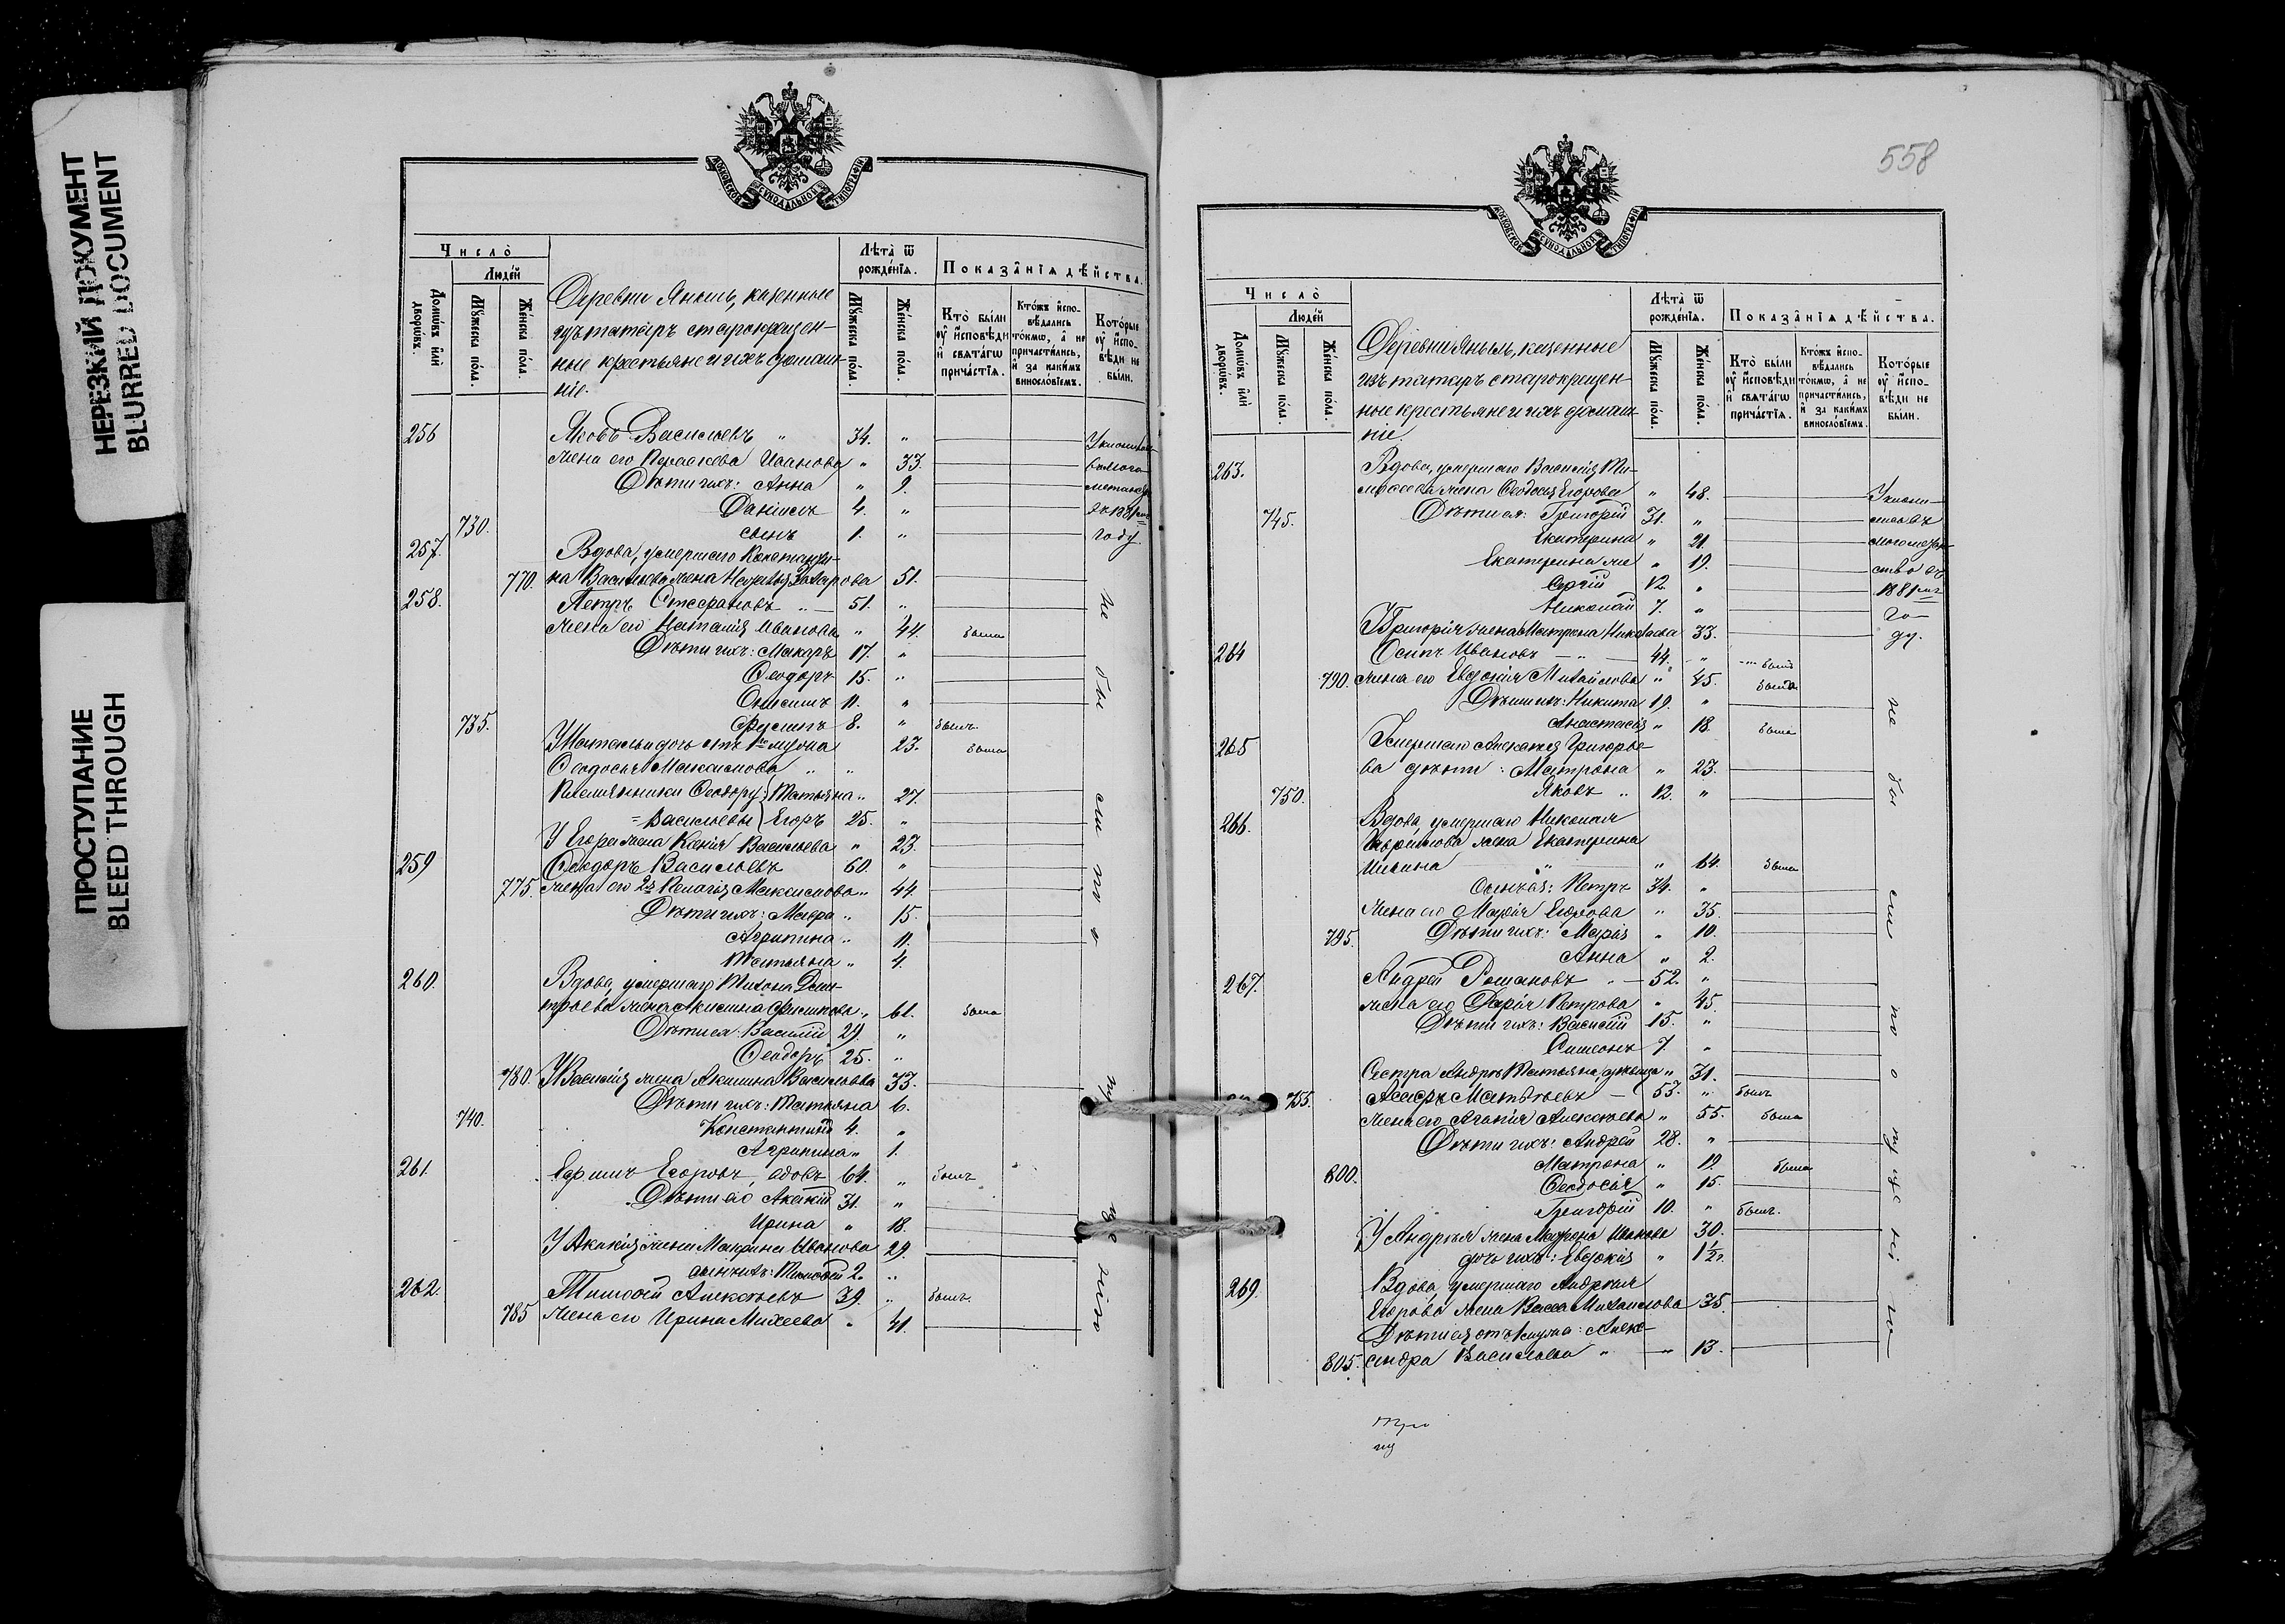 НЕРЕЗКИЙ ДОКУМЕНТ
BLURRED DOCUMENT
ПРОСТУПАНИЕ
BLEED THROUGH
МОСКОВСКОЙ СѴНОДАЛЬНОЙ ТИПОГРАФІИ
Число̀
Люде́й
Домѡ́въ и҆лѝ дворѡ́въ.
Мꙋ́жеска по́ла.
Же́нска по́ла.
Деревни Янылъ, казенные
изъ татаръ старокрещен-
ные крестьяне и ихъ домаш-
ніе.
Лѣта̀ ѿ рожде́нїѧ.
Мꙋ́жеска по́ла.
Же́нска по́ла.
Показа̑нїѧ дѣ́йства.
Кто̀ бы́ли ᲂу҆ и҆́сповѣди и҆ свѧта́гѡ прича́стїѧ.
Кто́жъ и҆сповѣ́дались то́кмѡ, а҆ не причасти́лись, и҆ за каки́мъ винosло́вїемъ.
Кото́рые ᲂу҆ и҆́сповѣди не бы́ли.
256 Яковъ Васильевъ " 34. "
жена его Параскева Иванова " 33.
Дѣти ихъ: Анна " 9.
Даніилъ 4. "
730. сынъ 1. " году.
257. Вдова, умершаго Константи-
770. на Васильева жена Наталья Захарова 51.
258. Петръ Стефановъ " 51. "
жена его Наталія Иванова " 44. была
Дѣти ихъ: Макаръ 17. "
Ѳеодоръ 15. "
Онисимъ 11. "
735. Филипъ 8. " былъ
У Натальи дочь отъ 1го мужа 23. была
Ѳеодосья Максимова " "
Племянники Ѳеодору: Татьяна " 27.
Васильевы Егоръ 25. "
У Егора жена Ксенія Васильева " 23.
259 Ѳеодоръ Васильевъ 60. "
775. жена его 2я Пелагія Максимова " 44
Дѣти ихъ: Мавра " 15.
Агрипина " 11.
Татьяна " 4.
260. Вдова, умершаго Тихона Дми-
тріева жена Акилина Филипова " 61. была
Дѣти ея: Василій 29. "
Ѳеодоръ 25. "
780. У Василія жена Акилина Васильева 33.
Дѣти ихъ: Татьяна 6.
740. Константинъ 4. "
Агрипина " 1.
261. Ефимъ Егоровъ, вдовъ 64. " былъ
Дѣти его Акакій 31. "
Ирина " 18.
У Акакія жена Матрина Иванова 29.
сынъ ихъ: Тимоѳей 2. "
262. Тимоѳей Алексѣевъ 39. " былъ.
785 жена его Ирина Михеева " 41.
558
МОСКОВСКОЙ СѴНОДАЛЬНОЙ ТИПОГРАФІИ
Число̀
Люде́й
Домѡ́въ и҆лѝ дворѡ́въ.
Мꙋ́жеска по́ла.
Же́нска по́ла.
Деревни Янылъ, казенные
изъ татаръ старокрещен-
ные крестьяне и ихъ домаш-
ніе.
Лѣта̀ ѿ рожде́нїѧ.
Мꙋ́жеска по́ла.
Же́нска по́ла.
Показа̑нїѧ дѣ́йства.
Кто̀ бы́ли ᲂу҆ и҆́сповѣди и҆ свѧта́гѡ прича́стїѧ.
Кото́рые ᲂу҆ и҆́сповѣди не бы́ли.
263. Вдова, умершаго Василія Ти-
моѳеева жена Ѳеодосія Егорова " 48.
745. Дѣти ея: Григорій 31. "
Екатерина " 21.
Екатерина " 19.
Сергій 12. "
Николай 7. "
У Григорія жена Матрона Николаева 33.
264 Осипъ Ивановъ 44. " былъ
790. жена его Евдокія Михайлова " 45. была
Дѣти ихъ: Никита 19. "
Анастасія " 18. была
265 Умершаго Алексѣя Григорье-
ва дѣти: Матрона " 23.
750. Яковъ " 12. "
266. Вдова, умершаго Николая
Гаврилова жена Екатерина
Ильина " 64. была
сынъ ея: Петръ 34. "
жена его Марія Егорова " 35.
795. Дѣти ихъ: Марія " 10.
Анна " 2.
267. Андрей Романовъ " 52. "
жена его Дарія Петрова " 45.
Дѣти ихъ: Василій 15. "
Симеонъ 7. "
Сестра Андрея Татьяна, дѣвица " 31.
755. Матвѣевъ 53. " былъ
жена его Агапія Алексѣева " 55. была
Дѣти ихъ: Андрей 28. "
Матрона " 19. была
800. Ѳеодосья " 15.
Григорій 10. " былъ.
У Андрея жена Матрона Иванова 30.
дочь ихъ: Евдокія " 1½.
269. Вдова, умершаго Андрея
Егорова жена Васса Михайлова 35.
Дѣти ея отъ 1 мужа: Алек-
805. сандра Васильева " 13.